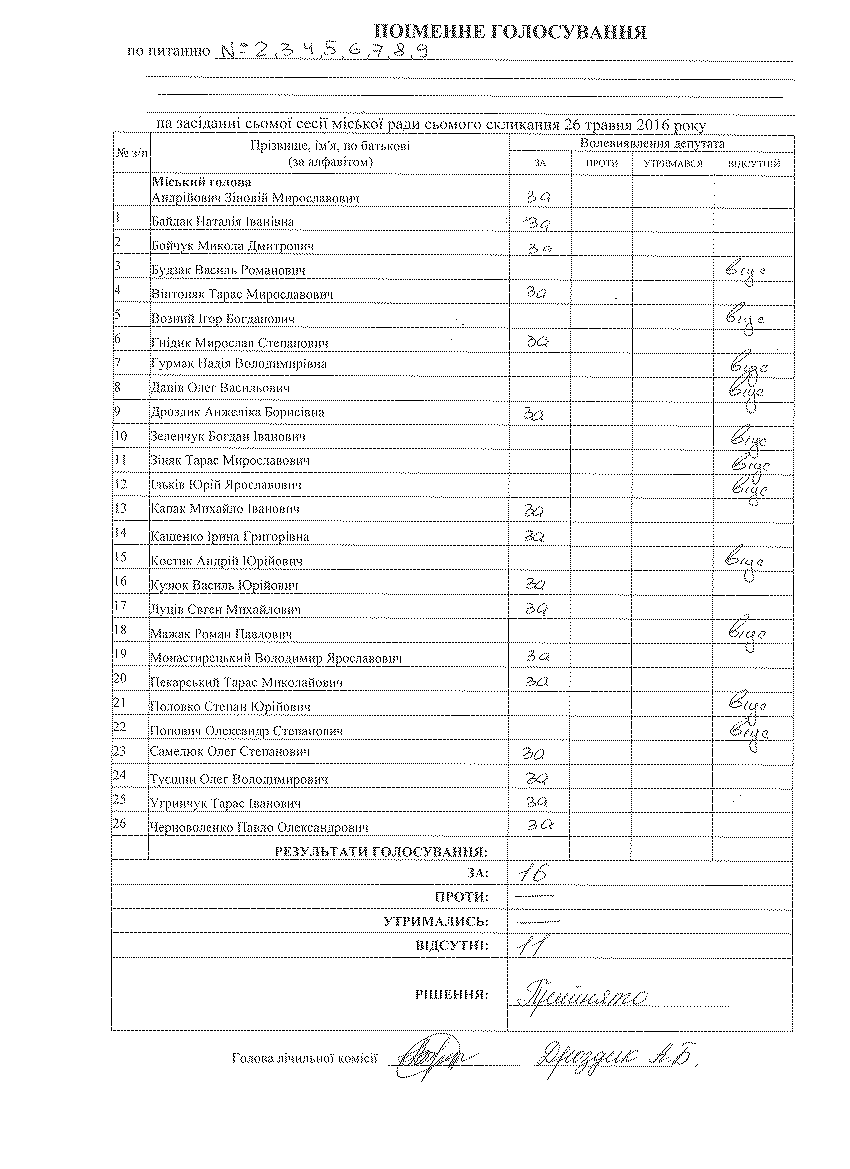 ПОІМЕННЕ ГОЛОСУВАННЯ
по питанню № 2,3,4,5,6,7,8,9
на засіданні сьомої сесії міської ради сьомого скликання 26 травня 2016 року
№ з/п Прізвище, ім'я, по батькові (за алфавітом) Волевиявлення депутата
ЗА ПРОТИ УТРИМАВСЯ ВІДСУТНІЙ
Міський голова
Андрійович Зіновій Мирославович за
1 Байдак Наталія Іванівна за
2 Бойчук Микола Дмитрович за
3 Будзак Василь Романович відс
4 Вінтоняк Тарас Мирославович за
5 Возний Ігор Богданович відс
6 Гнідик Мирослав Степанович за
7 Гурмак Надія Володимирівна відс
8 Даців Олег Васильович відс
9 Дроздик Анжеліка Борисівна за
10 Зеленчук Богдан Іванович відс
11 Зіняк Тарас Мирославович відс
12 Ільків Юрій Ярославович відс
13 Капак Михайло Іванович за
14 Кащенко Ірина Григорівна за
15 Костик Андрій Юрійович відс
16 Кузюк Василь Юрійович за
17 Луців Євген Михайлович за
18 Мажак Роман Павлович відс
19 Монастирецький Володимир Ярославович за
20 Пекарський Тарас Миколайович за
21 Половко Степан Юрійович відс
22 Попович Олександр Степанович відс
23 Самелюк Олег Степанович за
24 Тусшин Олег Володимирович за
25 Угринчук Тарас Іванович за
26 Черноволенко Павло Олександрович за
РЕЗУЛЬТАТИ ГОЛОСУВАННЯ:
ЗА: 16
ПРОТИ: —
УТРИМАЛИСЬ: —
ВІДСУТНІ: 11
РІШЕННЯ: Прийнято
Голова лічильної комісії Дроздик А.Б.